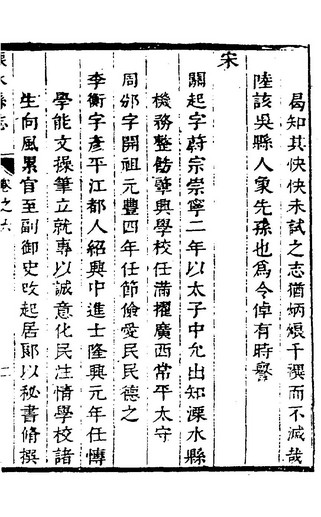 曷知其怏怏未試之志猶炳烺千禩而不滅哉
陸該吳縣人象先孫也為令倬有時譽
宋
關起字蔚宗崇寧二年以太子中允出知溧水縣
機務整飭葺興學校任滿擢廣西常平太守
周邠字開祖元豐四年任節儉愛民民德之
李衡字彥平江都人紹興中進士隆興元年任博
學能文操筆立就專以誠意化民注情學校諸
生向風累官至副御史改起居郎以秘書脩撰
水縣志
卷之六